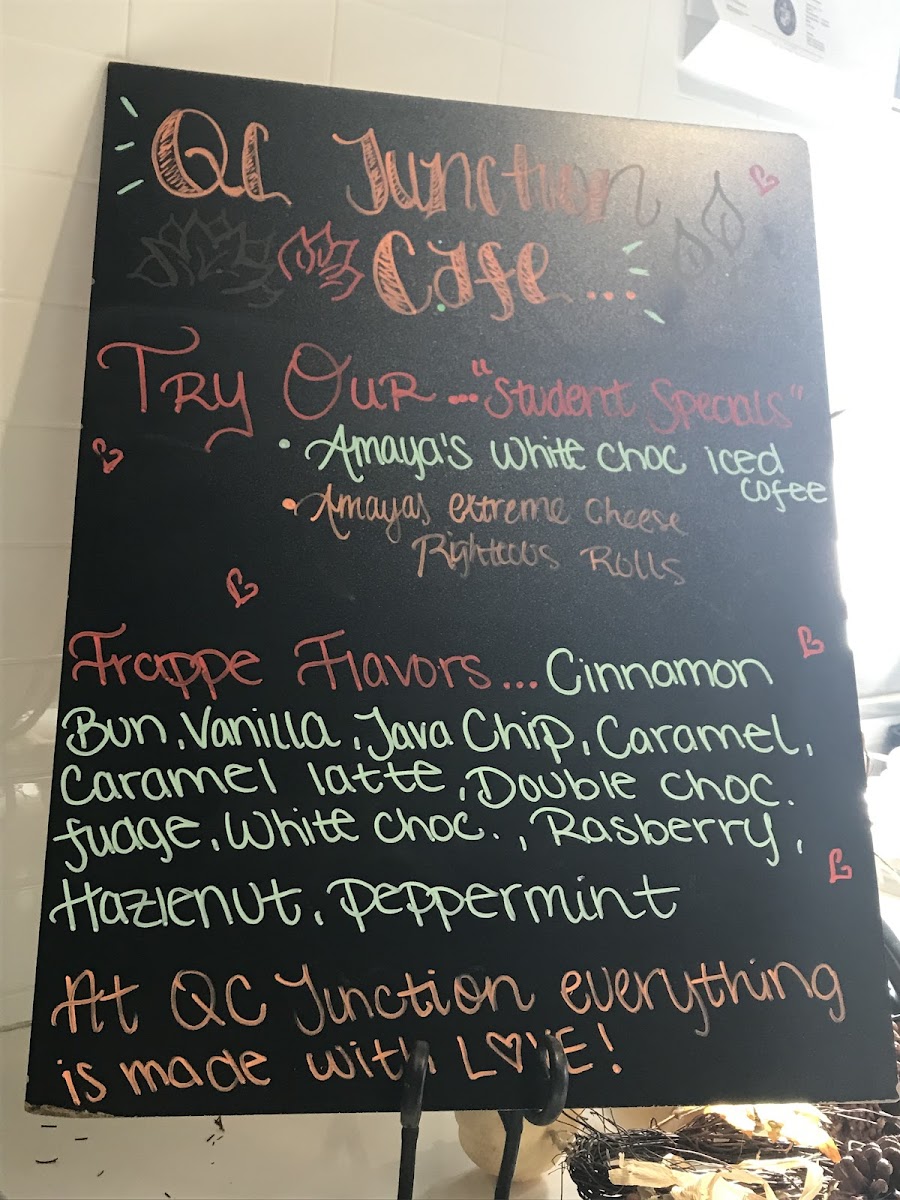 QC Junction
Cafe...
Try Our..."Student Specials"
• Amaya's white choc iced
cofee
• Amayas extreme cheese
Righteous Rolls
Frappe Flavors... Cinnamon
Bun, Vanilla, Java Chip, Caramel,
Caramel latte, Double choc.
fudge, White choc., Rasberry,
Hazlenut, peppermint
At QC Junction everything
is made with LOVE!